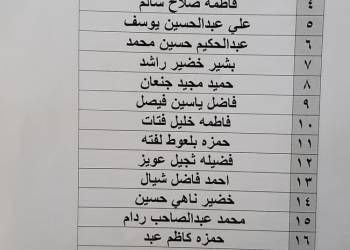 ٤ فاطمة صلاح سالم
٥ علي عبدالحسين يوسف
٦ عبدالحكيم حسين محمد
٧ بشير خضير راشد
٨ حميد مجيد جنعان
٩ فاضل ياسين فيصل
١٠ فاطمه خليل فتات
١١ حمزه بلعوط لفته
١٢ فضيله ثجيل عويز
١٣ احمد فاضل شيال
١٤ خضير ناهي حسين
١٥ محمد عبدالصاحب ردام
١٦ حمزه كاظم عبد